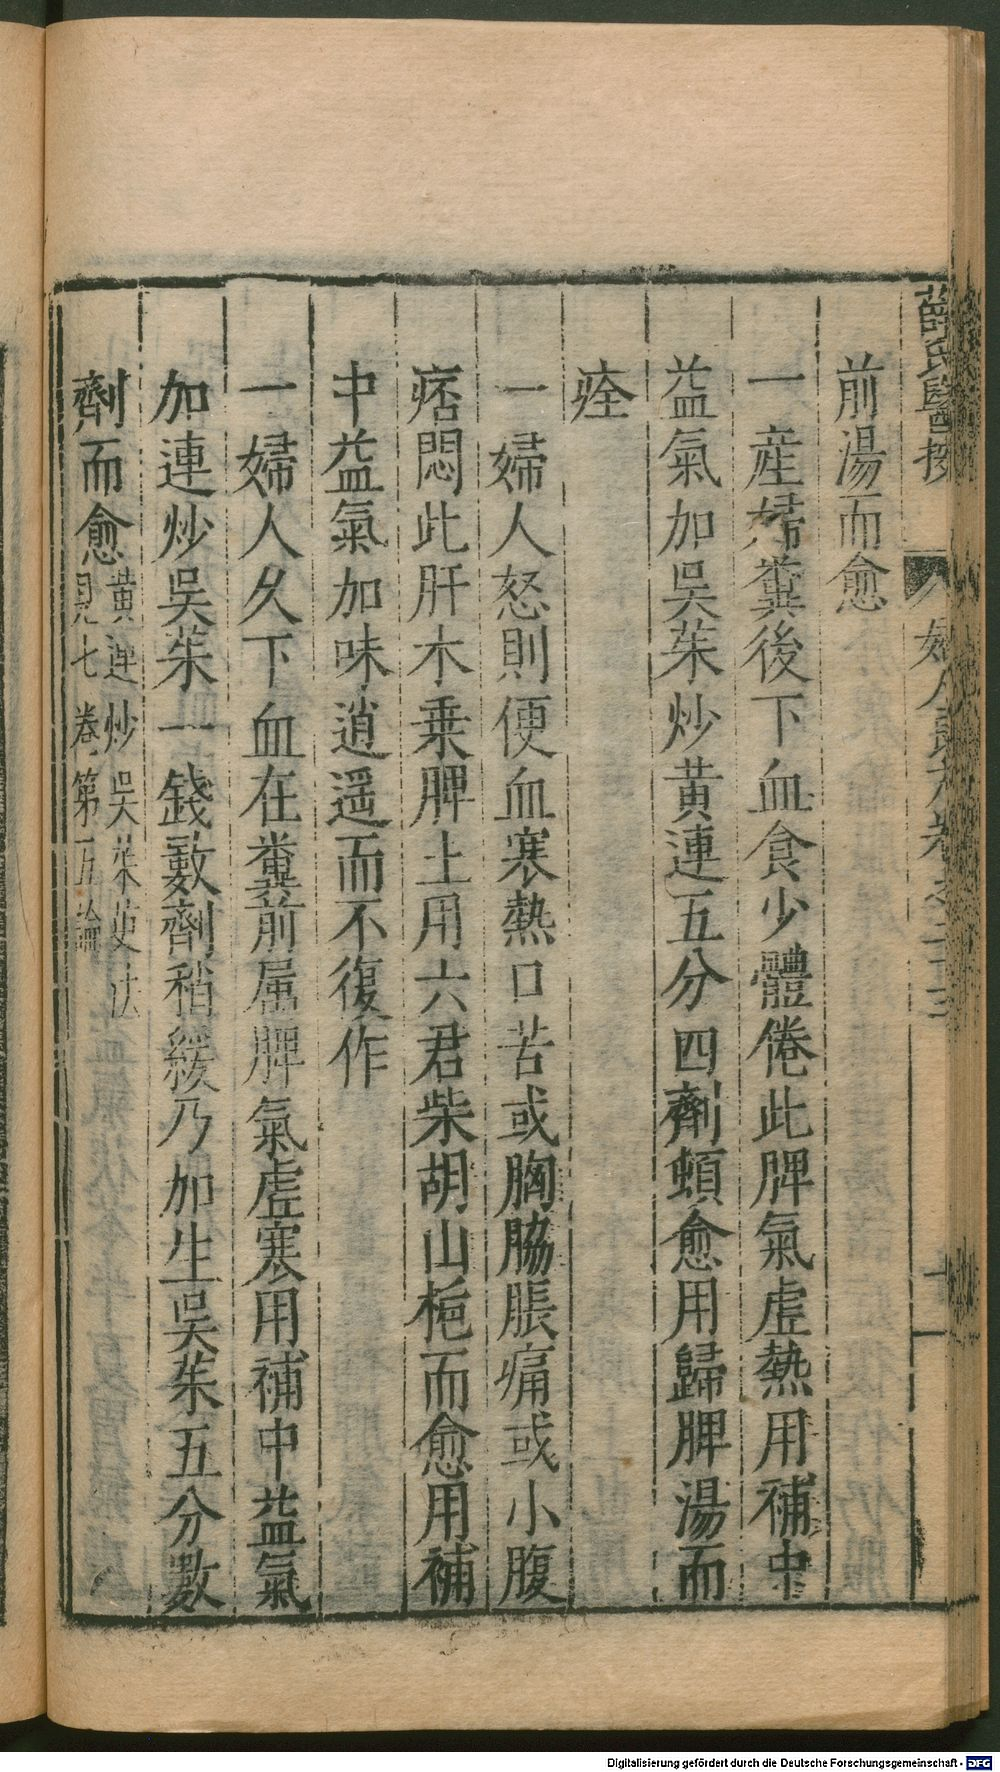 薛氏醫按
婦人良方卷之二十三
前湯而愈
一產婦糞後下血食少體倦此脾氣虛熱用補中
益氣加吳茱炒黃連五分四劑頓愈用歸脾湯而
痊
一婦人怒則便血寒熱口苦或胸脇脹痛或小腹
痞悶此肝木乗脾土用六君柴胡山梔而愈用補
中益氣加味逍遥而不復作
一婦人久下血在糞前屬脾氣虛寒用補中益氣
加連炒吳茱一錢數劑稍緩乃加生吳茱五分數
劑而愈黃連炒吳茱萸法
見七卷第五論
Digitalisierung gefördert durch die Deutsche Forschungsgemeinschaft - DFG